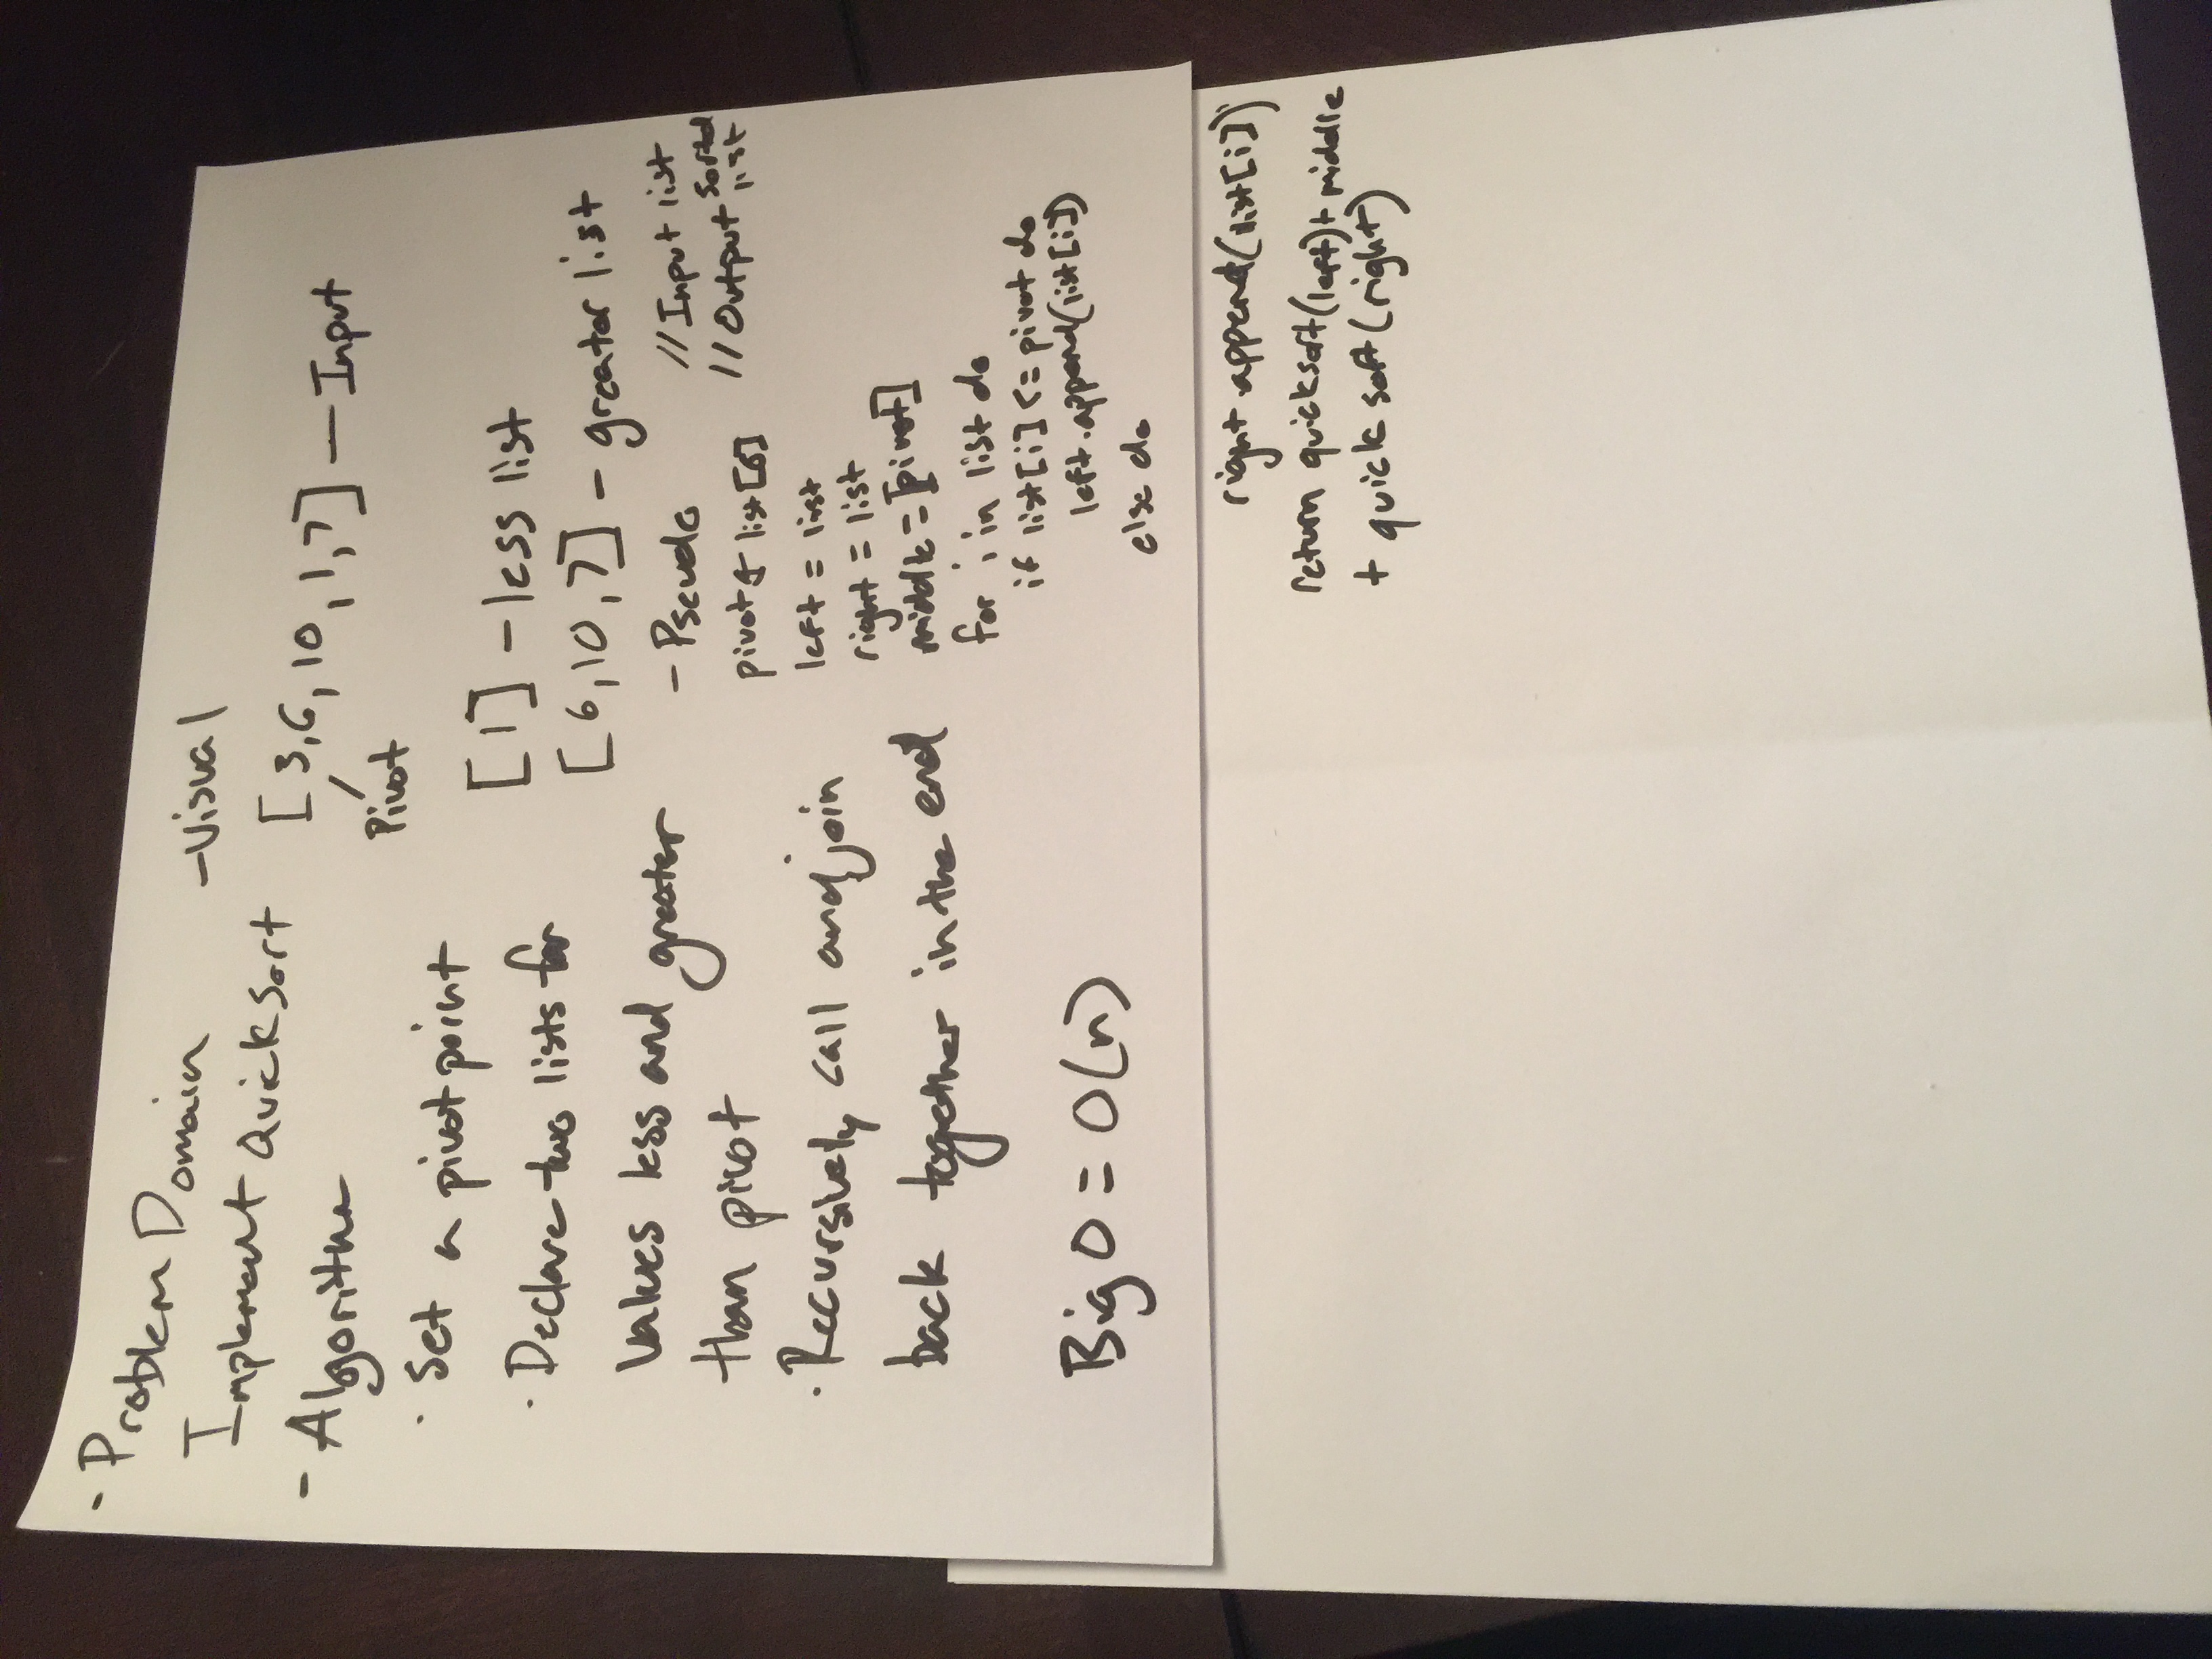 - Problem Domain
Implement Quicksort
- Algorithm
· Set a pivot point
· Declare two lists for
values less and greater
than pivot
· Recursively call and join
back together in the end
Big O = O(n)
- Visual
[3,6,10,1,7] — Input
Pivot
[1] - less list
[6,10,7] - greater list
- Pseudo
// Input list
// Output sorted list
pivot list[0]
left = list
right = list
middle = [pivot]
for i in list do
if list[i] <= pivot do
left.append(list[i])
else do
right.append(list[i])
return quicksort(left)+ middle
+ quicksort(right)